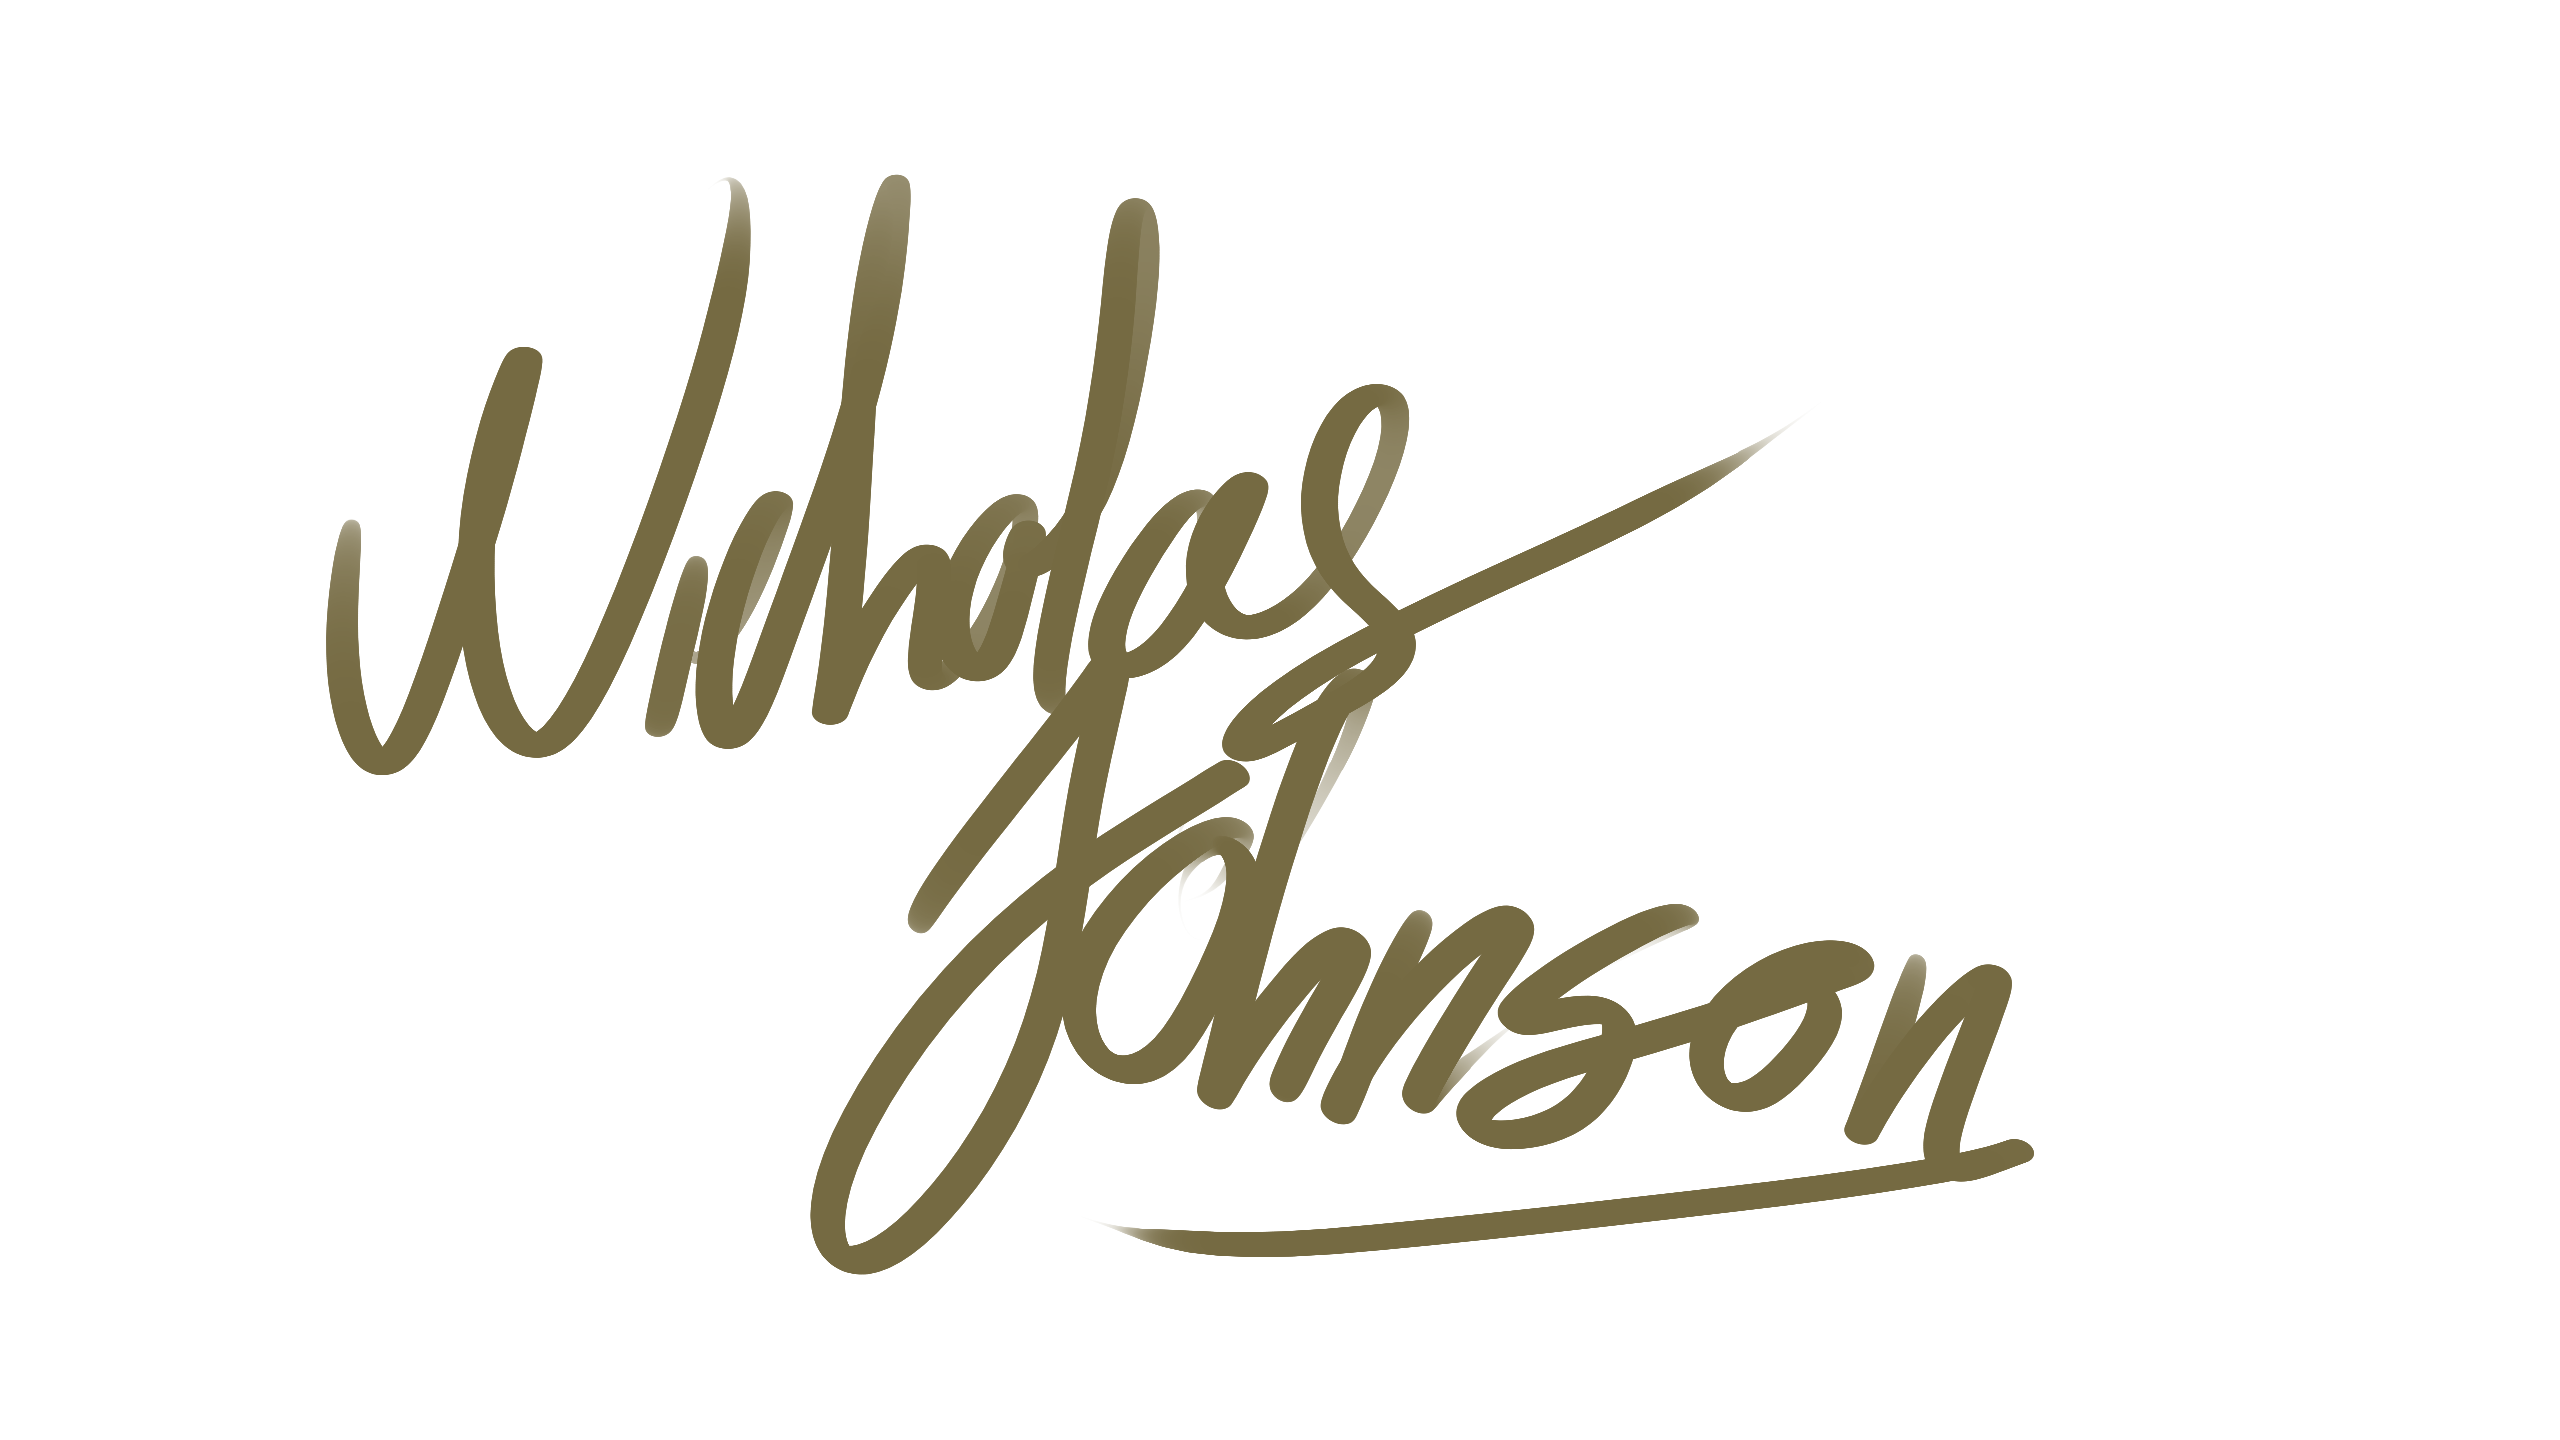 Nicholas
Johnson